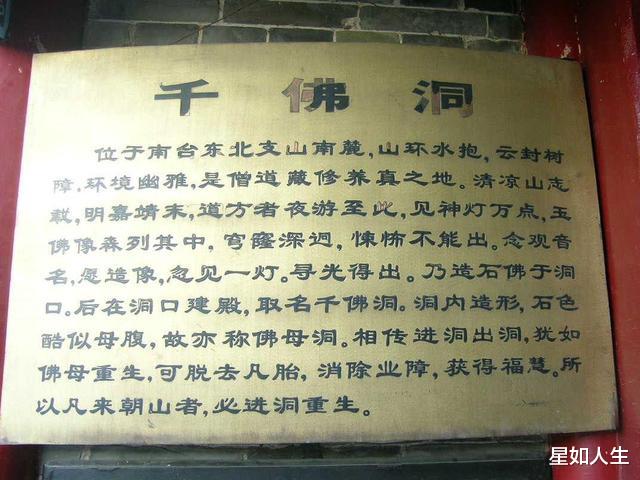 千佛洞
位于南台东北支山南麓,山环水抱,云封树
障,环境幽雅,是僧道藏修养真之地。清凉山志
载,明嘉靖末,道方者夜游至此,见神灯万点,玉
佛像森列其中,穹窿深迥,悚怖不能出。念观音
名,愿造像,忽见一灯。寻光得出。乃造石佛于洞
口。后在洞口建殿,取名千佛洞。洞内造形,石色
酷似母腹,故亦称佛母洞。相传进洞出洞,犹如
佛母重生,可脱去凡胎,消除业障,获得福慧。所
以凡来朝山者,必进洞重生。
星如人生